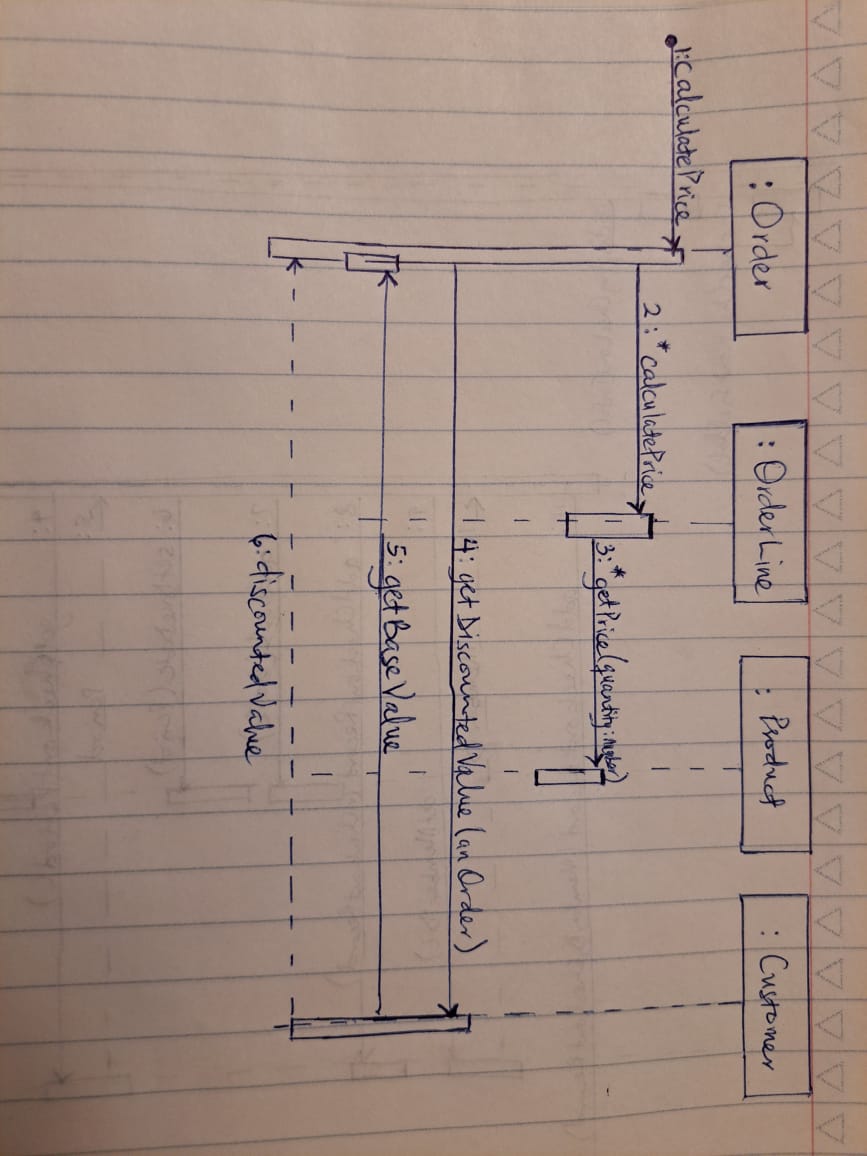 : Order
: OrderLine
: Product
: Customer
1: calculatePrice
2: * calculatePrice
3: * getPrice(quantity: number)
4: getDiscountedValue (an Order)
5: getBaseValue
6: discountedValue